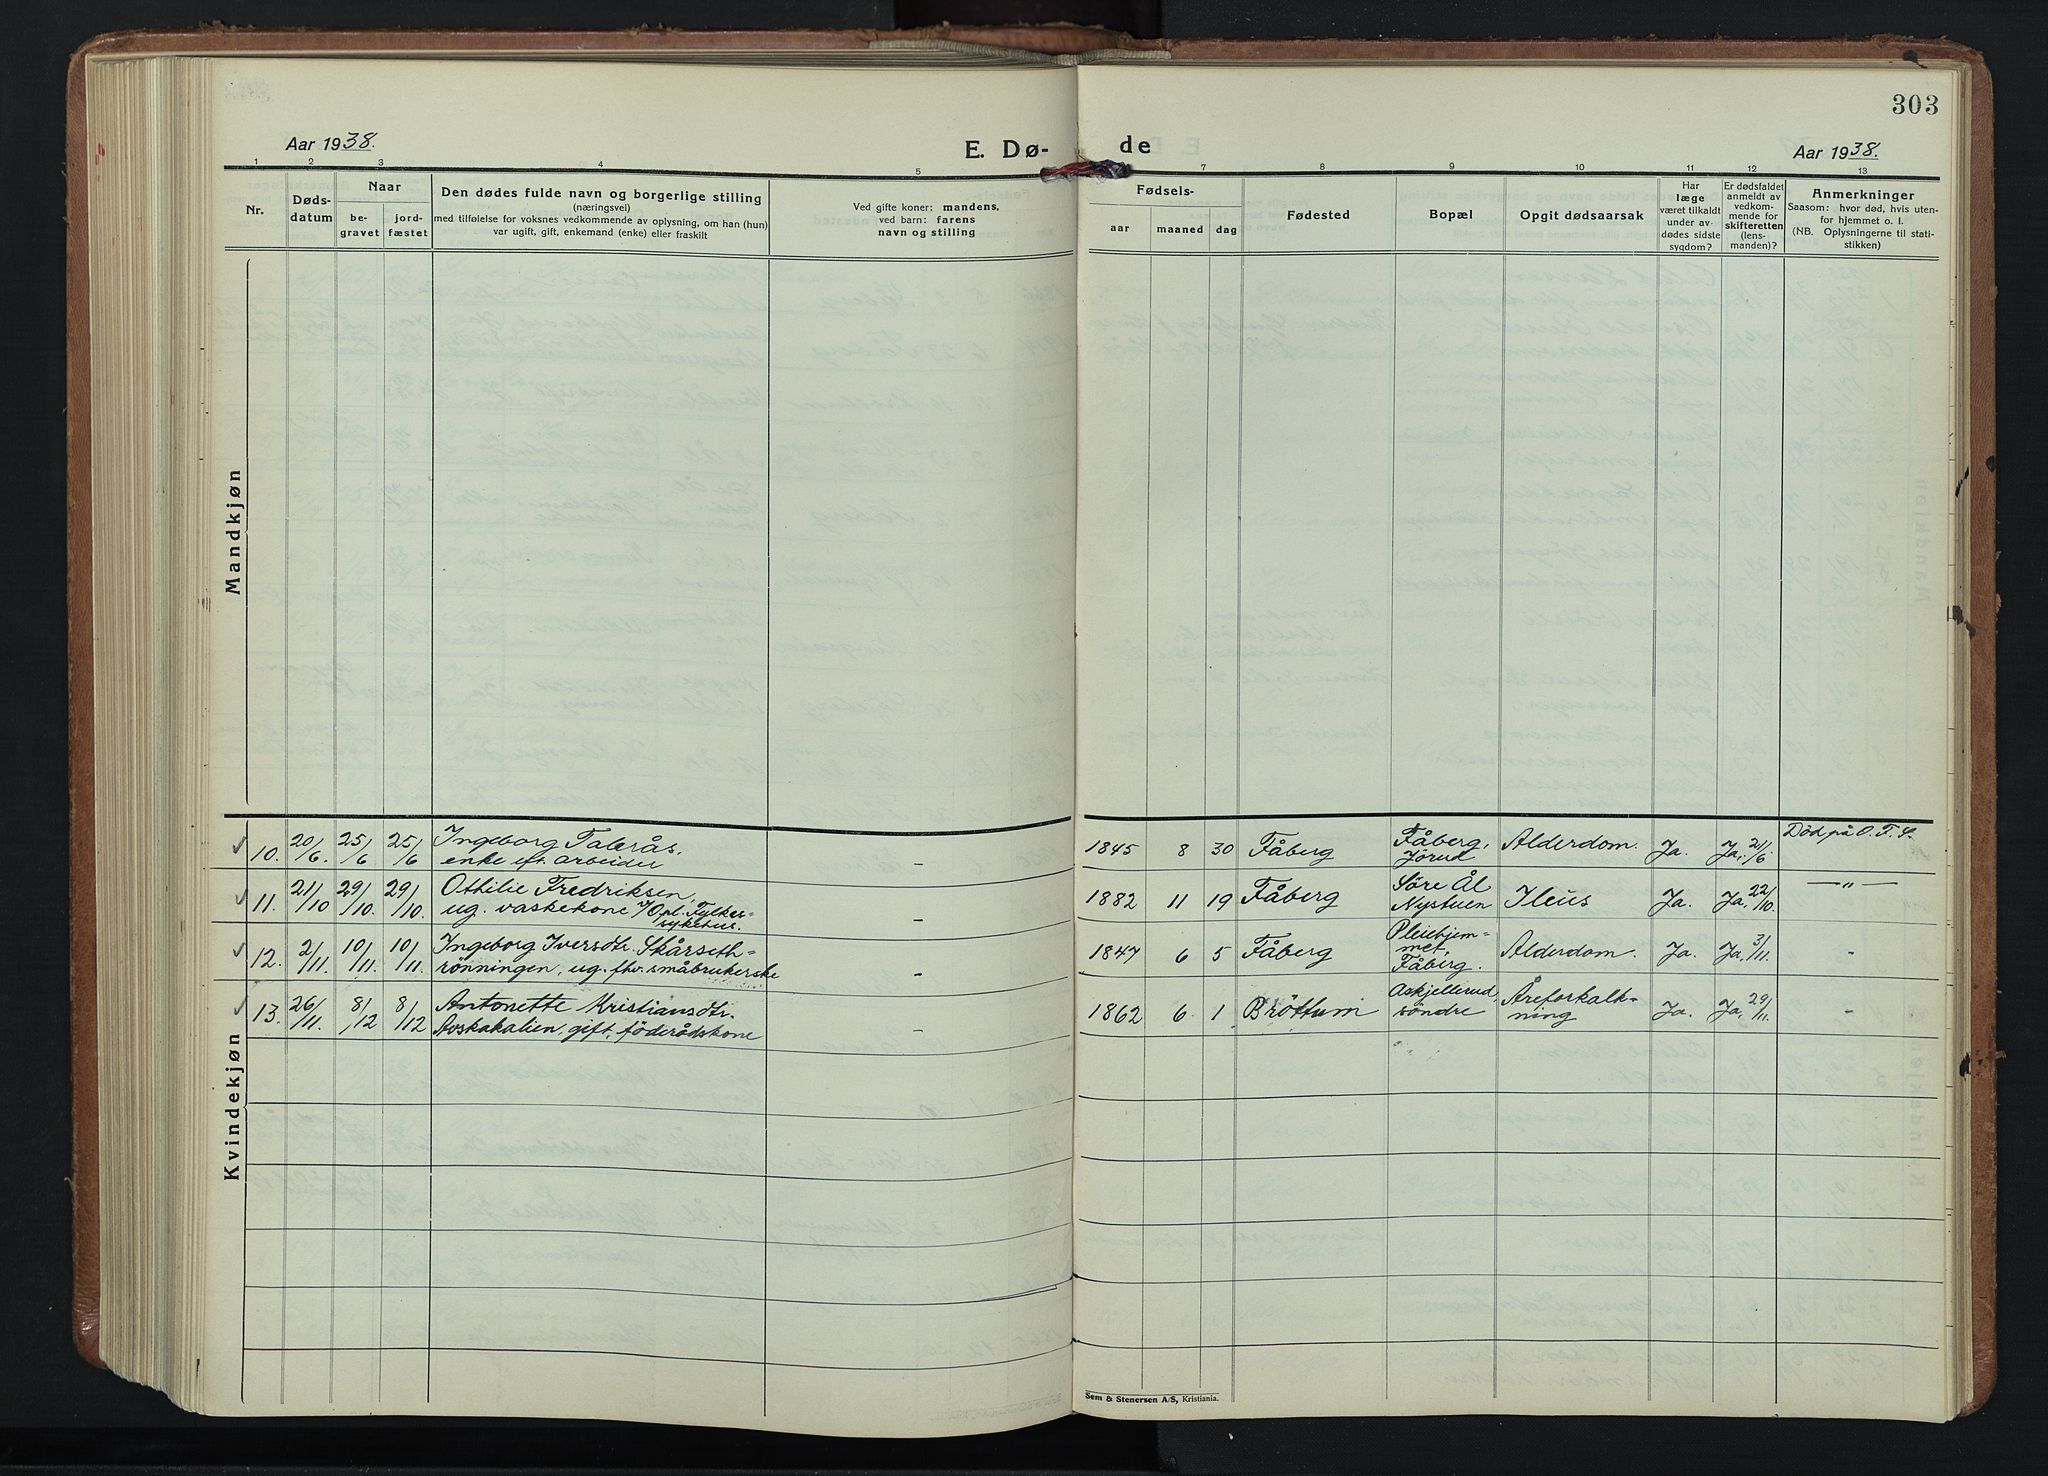 303
Aar 1938.
E. Dø-
de
Aar 1938.
1 2 3 4 5 7 8 9 10 11 12 13
Nr.
Døds-
datum
Naar
be-
gravet
jord-
fæstet
Den dødes fulde navn og borgerlige stilling
(næringsvei)
med tilføielse for voksnes vedkommende av oplysning, om han (hun)
var ugift, gift, enkemand (enke) eller fraskilt
Ved gifte koner: mandens,
ved barn: farens
navn og stilling
Fødsels-
aar
maaned
dag
Fødested
Bopæl
Opgit dødsaarsak
Har
læge
været tilkaldt
under av-
dødes sidste
sygdom?
Er dødsfaldet
anmeldt av
vedkom-
mende for
skifteretten
(lens-
manden)?
Anmerkninger
Saasom: hvor død, hvis uten-
for hjemmet o. l.
(NB. Oplysningerne til stati-
stikken)
Mandkjøn
Kvindekjøn
10. 20/6. 25/6 25/6 Ingeborg Talerås,
enke ef. arbeider
– 1845 8 30 Fåberg Fåberg,
Jørud
Alderdom. Ja. Ja, 21/6 Død på O. F. S.
11. 21/10 29/10. 29/10. Othilie Fredriksen,
ug. vaskekone v/Opl. Fylkes-
sykehus.
– 1882 11 19 Fåberg Søre Ål
Nystuen
Ileus Ja. Ja, 22/10. —„—
12. 2/11. 10/11. 10/11. Ingeborg Iversdtr. Skårseth-
rønningen, ug. fhv. småbrukerske
– 1847 6 5 Fåberg Pleiehjem-
met,
Fåberg.
Alderdom. Ja. Ja, 3/11. -
13. 26/11. 8/12 8/12 Antonette Kristiansdtr.
gift, føderådskone
– 1862 6 1 Brøttum Askjellerud
søndre
Åreforkalk-
ning
Ja. Ja, 29/11. -
Sem & Stenersen A/S, Kristiania.